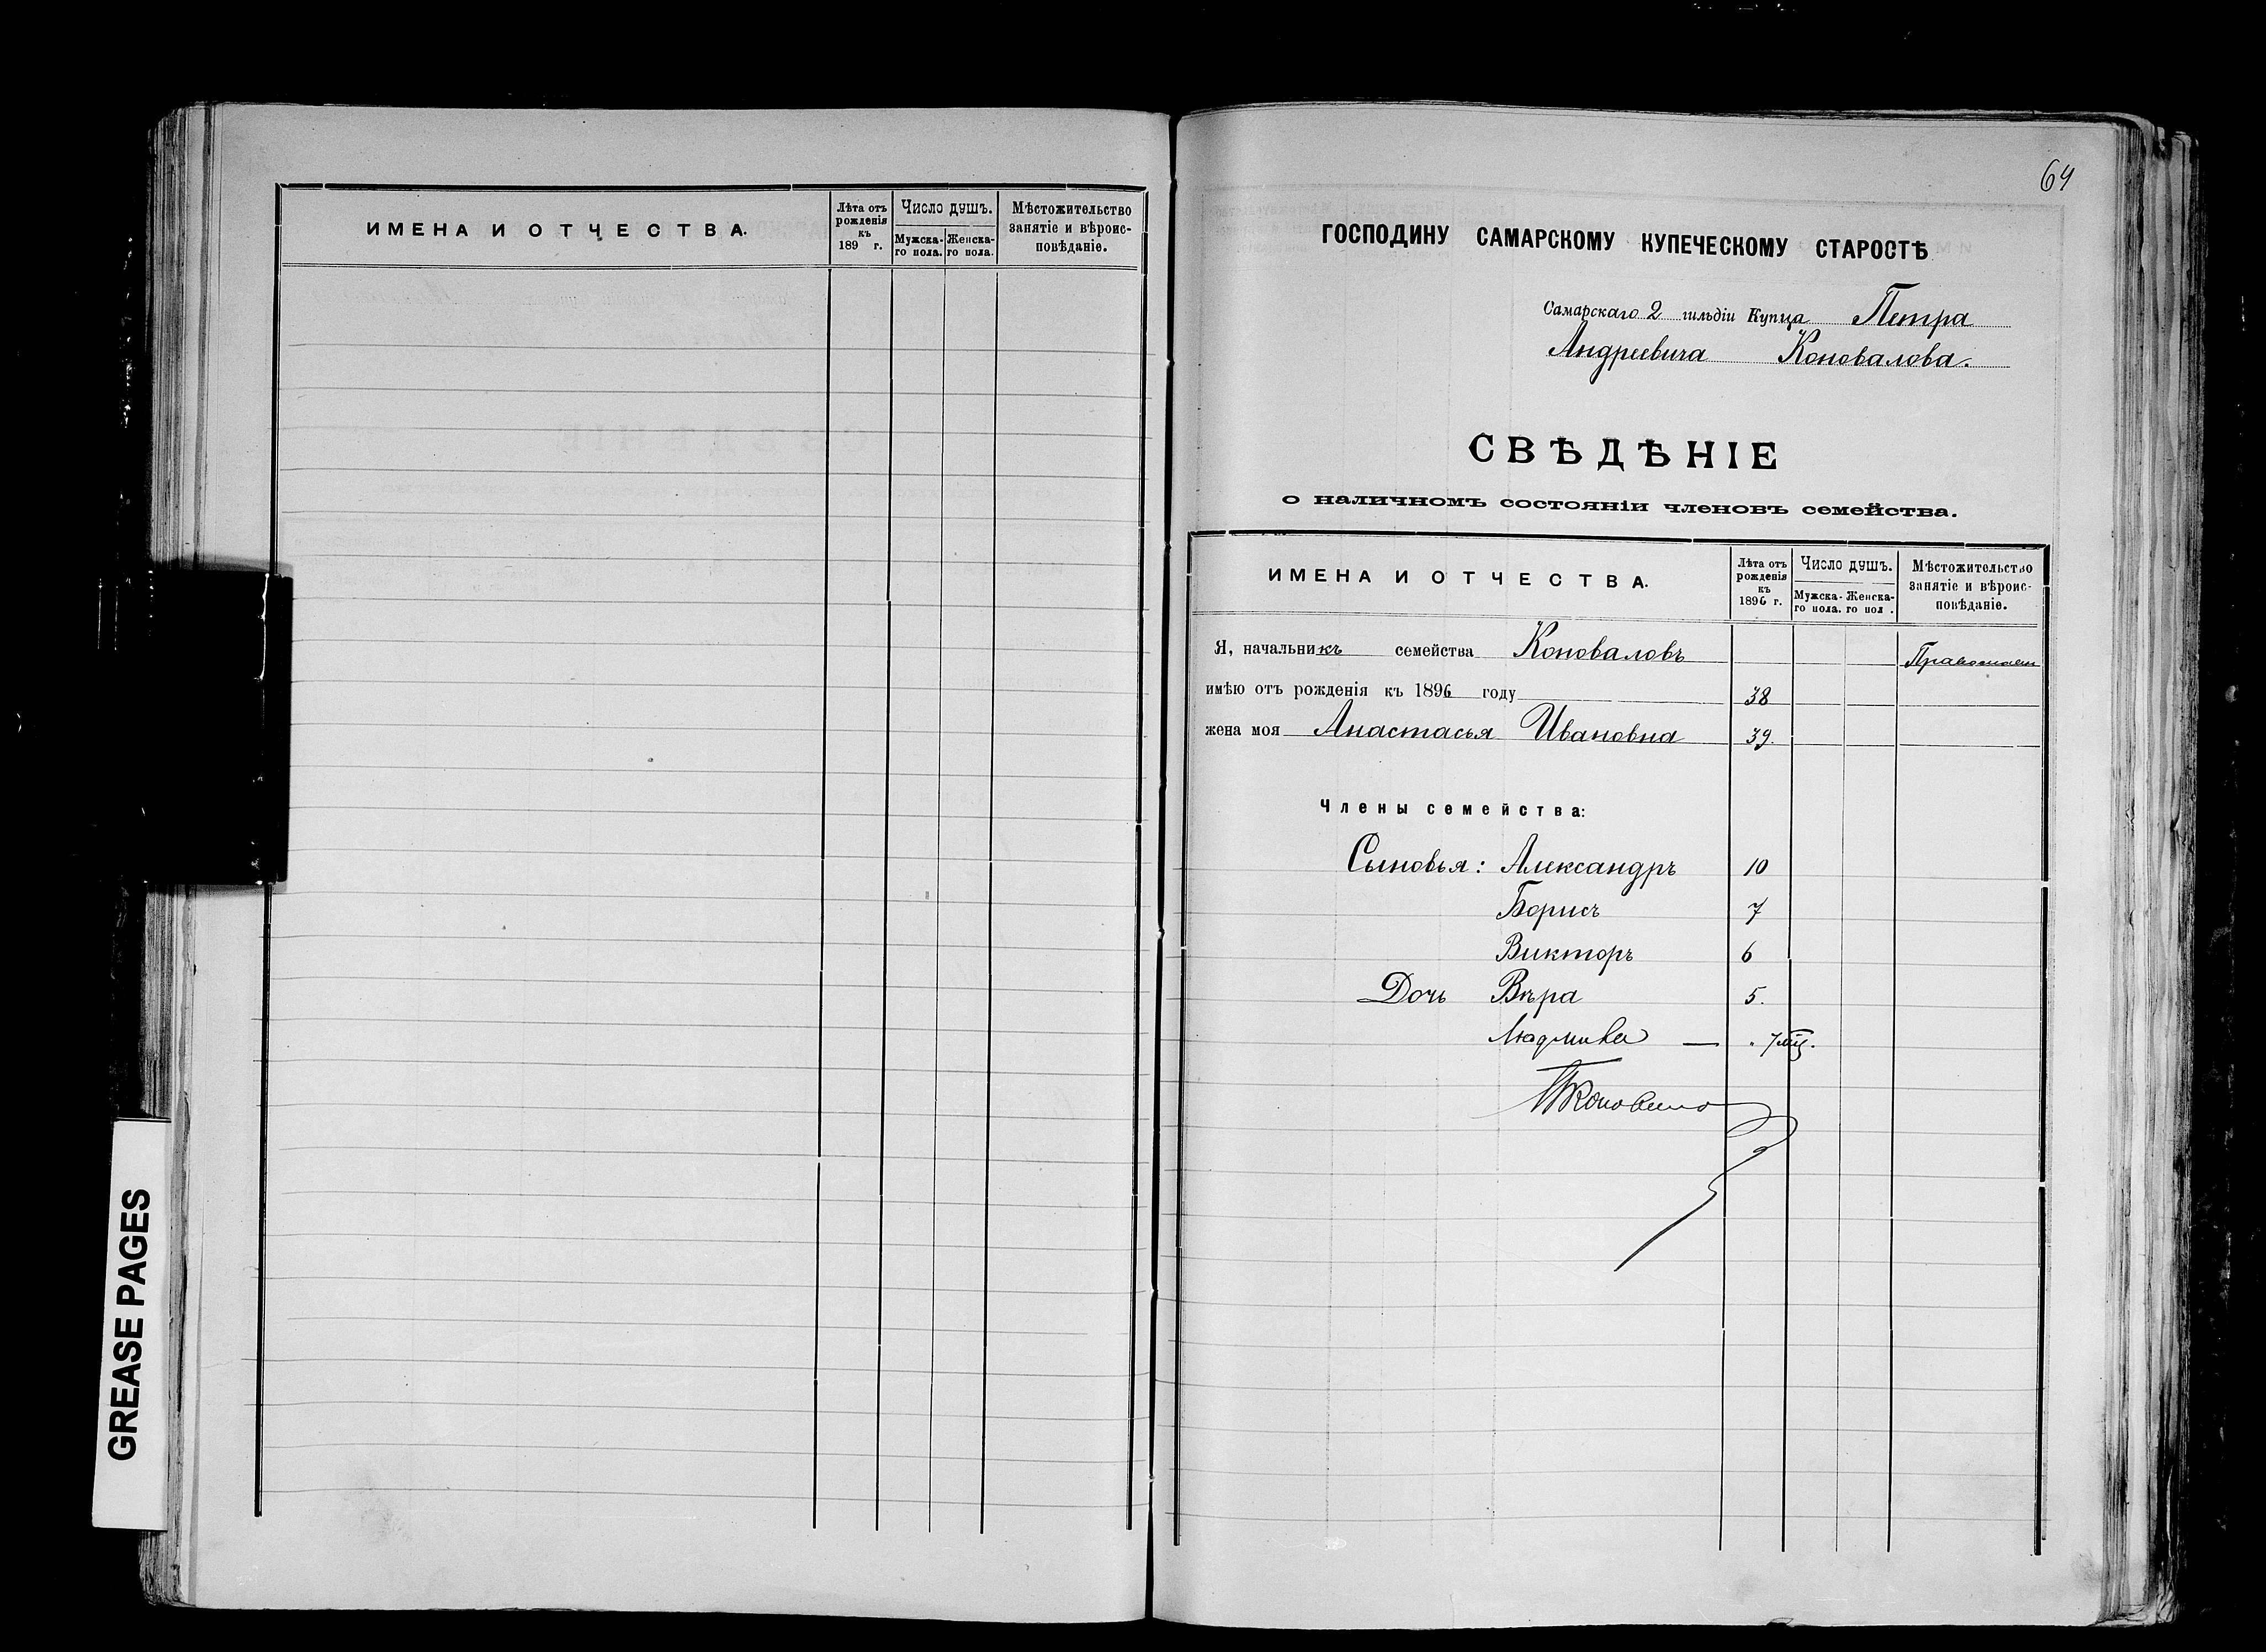 ИМЕНА И ОТЧЕСТВА.
Лѣта отъ рожденія къ 189 г.
Число душъ.
Мужска-го пола.
Женска-го пола.
Мѣстожительство занятіе и вѣроис-повѣданіе.
GREASE PAGES
64
ГОСПОДИНУ САМАРСКОМУ КУПЕЧЕСКОМУ СТАРОСТѢ
Самарскаго 2 гильдіи Купца Петра
Андреевича Коновалова.
СВѢДѢНІЕ
о наличномъ состояніи членовъ семейства.
ИМЕНА И ОТЧЕСТВА.
Лѣта отъ рожденія къ 1896 г.
Число душъ.
Мужска-го пола.
Женска-го пол .
Мѣстожительство занятіе и вѣроис-повѣданіе.
Я, начальникъ семейства Коноваловъ
имѣю отъ рожденія къ 1896 году 38
жена моя Анастасья Ивановна 39.
Члены семейства:
Сыновья: Александръ 10
Борисъ 7
Викторъ 6
Дочь Вѣра 5.
Людмила — 7